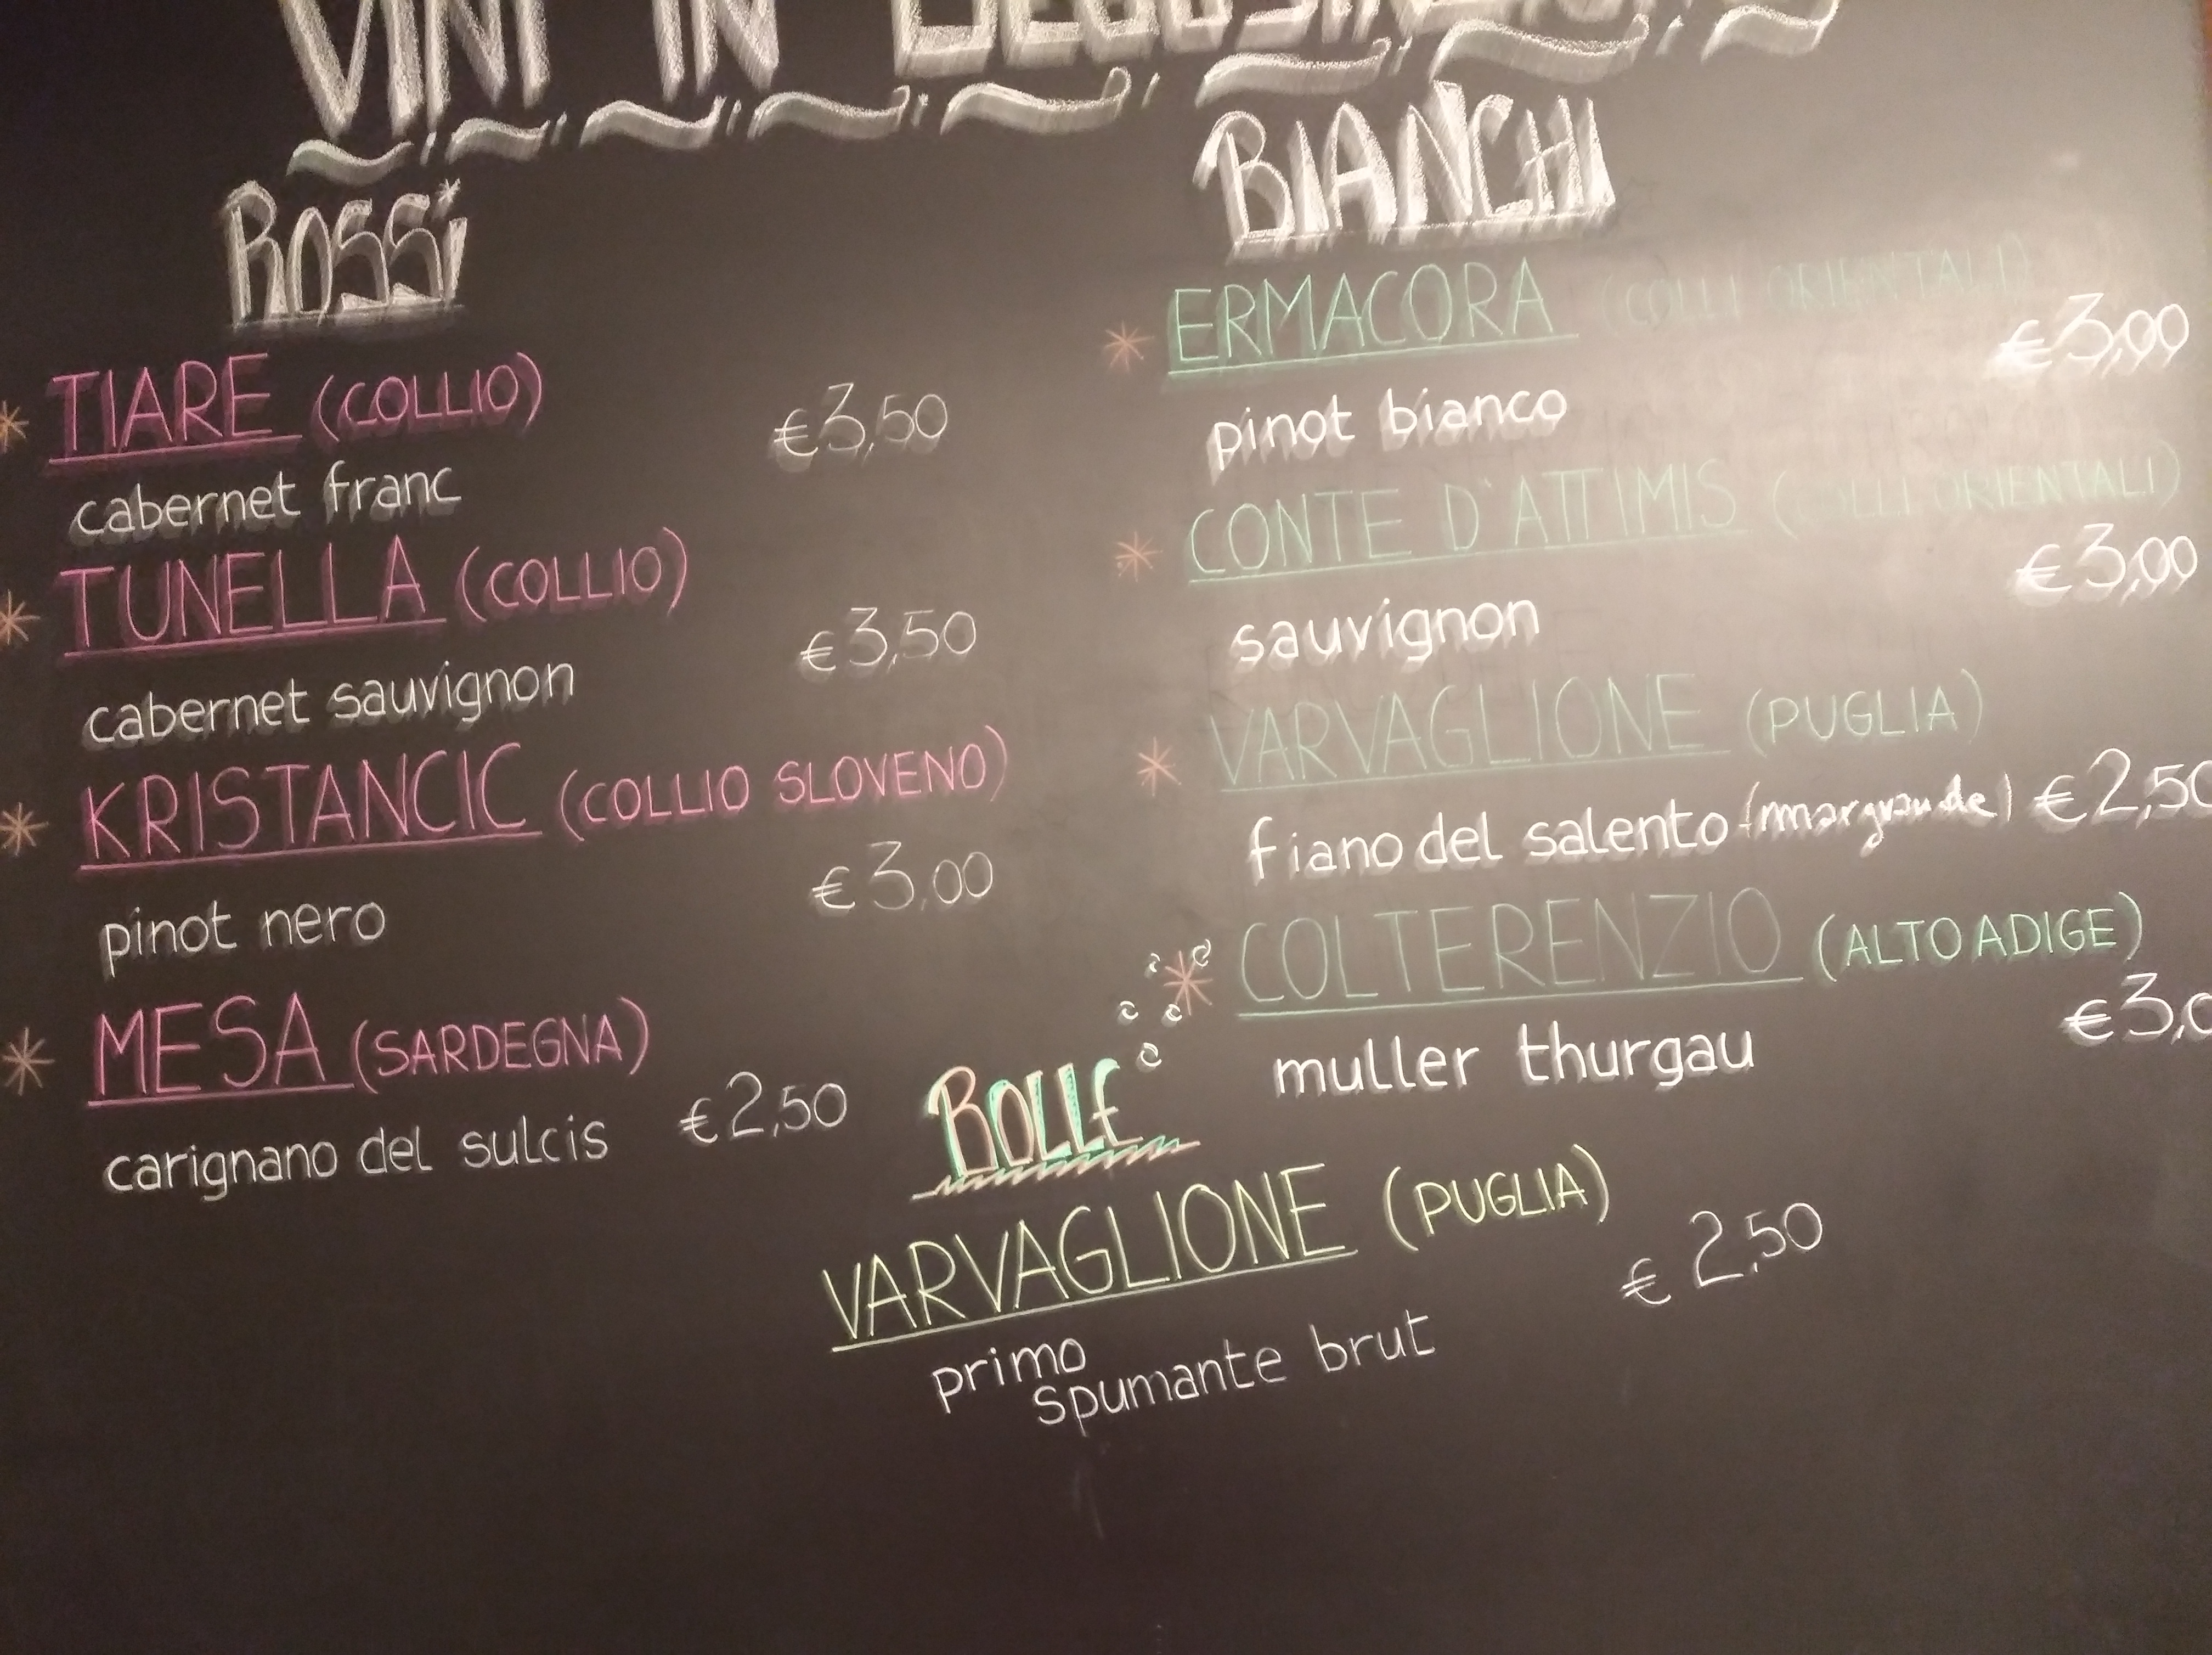 VINI IN DEGUSTAZIONE
ROSSi
TIARE (COLLIO)
€3,50
cabernet franc
TUNELLA (COLLIO)
€3,50
cabernet sauvignon
KRISTANCIC (COLLIO SLOVENO)
€3,00
pinot nero
MESA (SARDEGNA)
€2,50
carignano del sulcis
BIANCHI
ERMACORA (COLLI ORIENTALI)
€3,00
pinot bianco
CONTE D'ATTIMIS (COLLI ORIENTALI)
€3,00
sauvignon
VARVAGLIONE (PUGLIA)
fiano del salento (margrande) €2,50
COLTERENZIO (ALTO ADIGE)
€3,0
muller thurgau
BOLLE
VARVAGLIONE (PUGLIA)
€ 2,50
primo
spumante brut